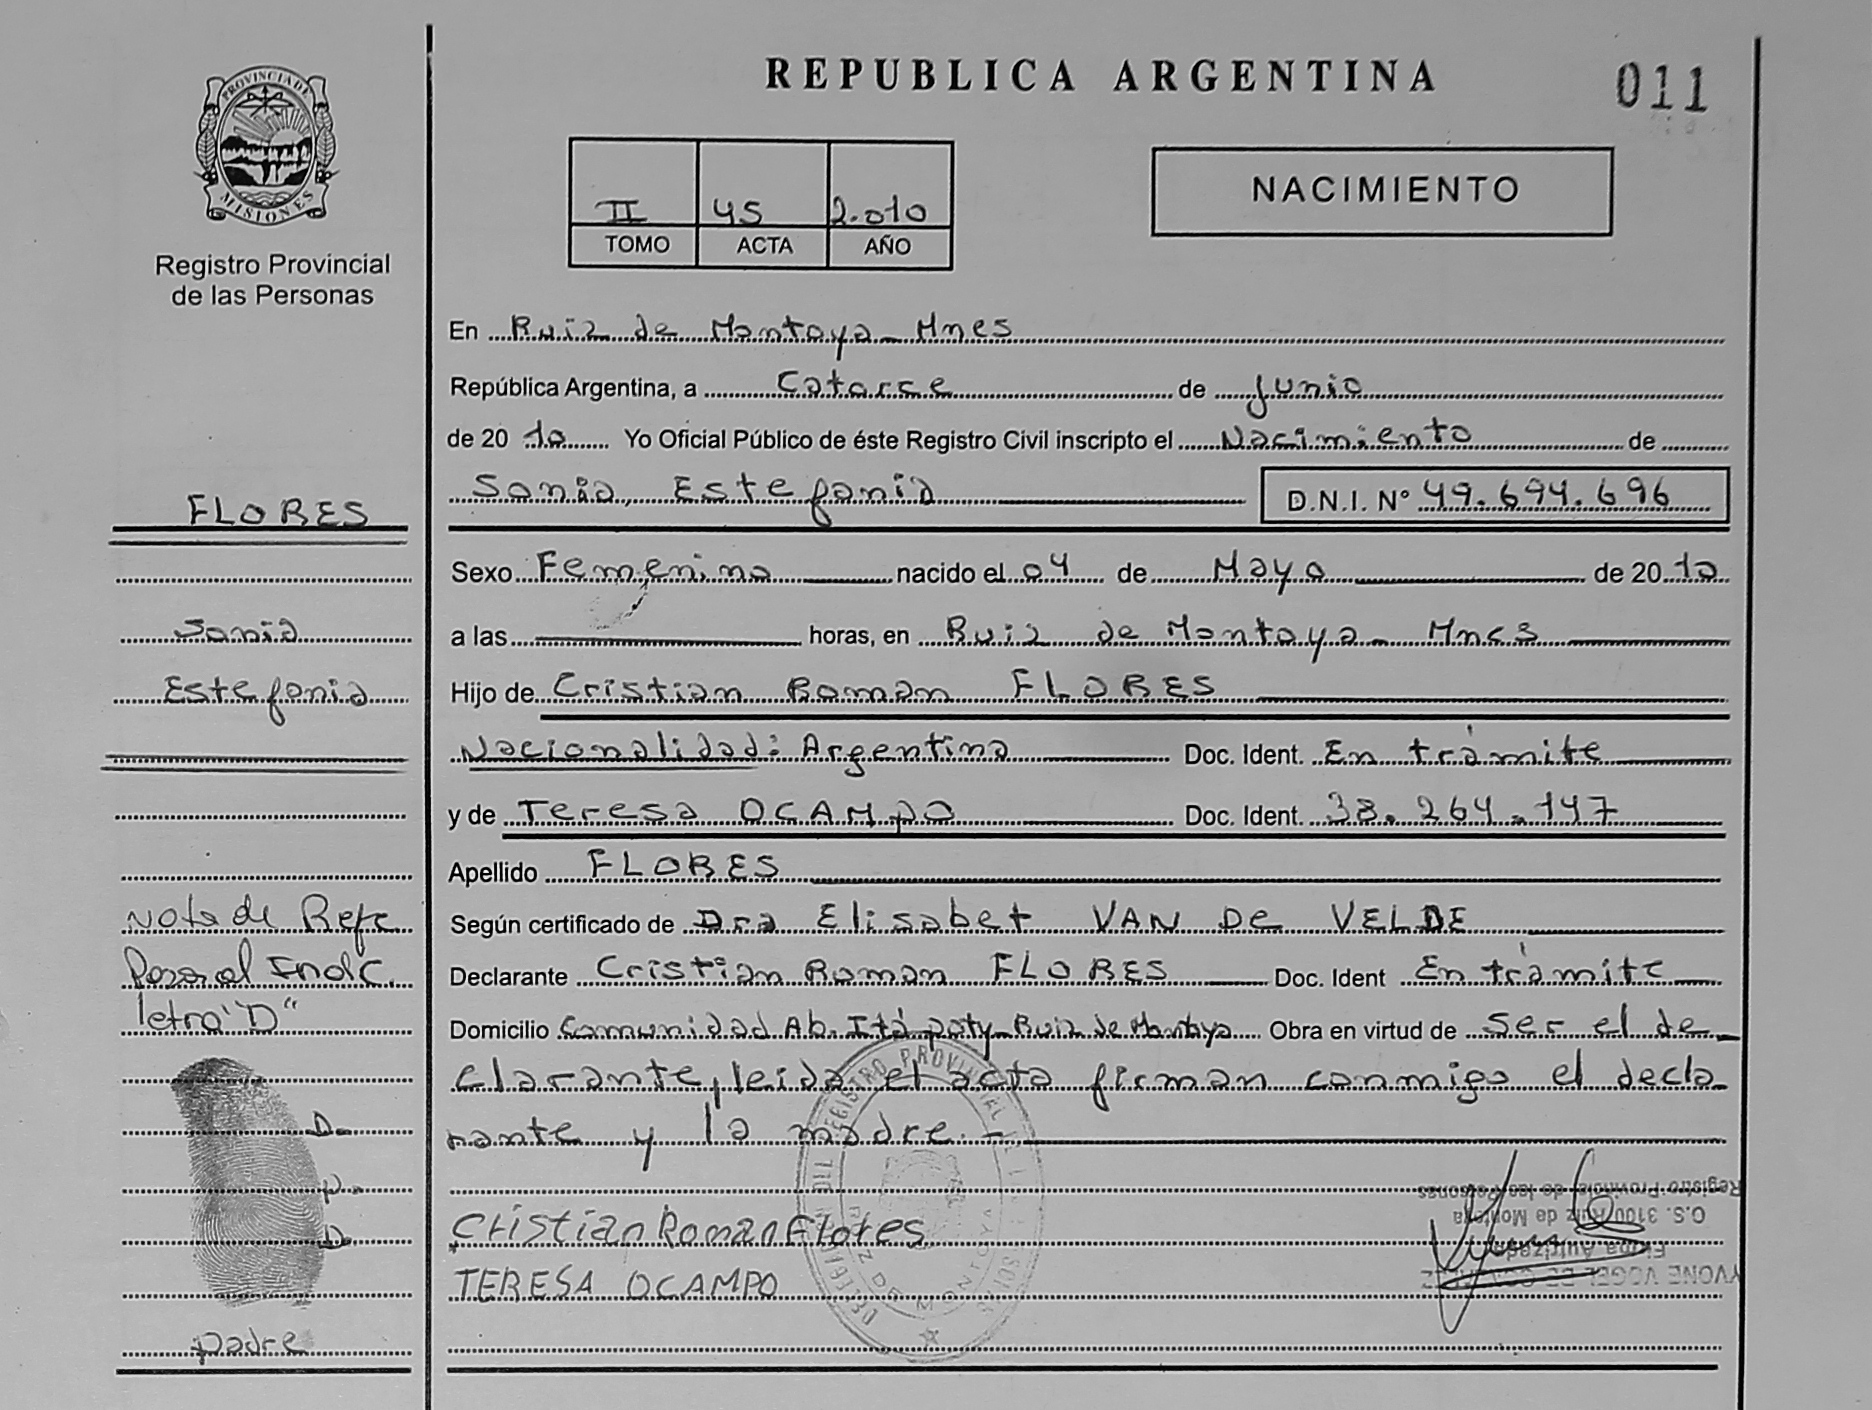 PROVINCIA DE
MISIONES
Registro Provincial
de las Personas
REPUBLICA ARGENTINA
011
II 45 2.010
TOMO ACTA AÑO
NACIMIENTO
En Ruiz de Montoya - Mnes
República Argentina, a Catorce de junio
de 20 10 Yo Oficial Público de éste Registro Civil inscripto el Nacimiento de
Sonia, Estefania D.N.I. Nº 49.694.696
Sexo Femenino nacido el 04 de Mayo de 20 10
a las horas, en Ruiz de Montoya - Mnes
Hijo de Cristian Roman FLORES
Nacionalidad: Argentina Doc. Ident. En trámite
y de Teresa OCAMPO Doc. Ident. 38.264.147
Apellido FLORES
Según certificado de Dra Elisabet VAN DE VELDE
Declarante Cristian Roman FLORES Doc. Ident En trámite
Domicilio Comunidad Ab. Itá poty - Ruiz de Montoya Obra en virtud de ser el de-
clarante, leida el acta firman conmigo el decla
rante y la madre. -
Cristian Roman Flores
TERESA OCAMPO
FLORES
Sonia
Estefania
Nota de Refe
letra "D"
D.
P.
D.
padre
REGISTRO PROVINCIAL
RUIZ DE MONTOYA
Registro Provincial de las Personas
O.S. 3100 Ruiz de Montoya
Firma Autorizada
YVONE VOGEL DE